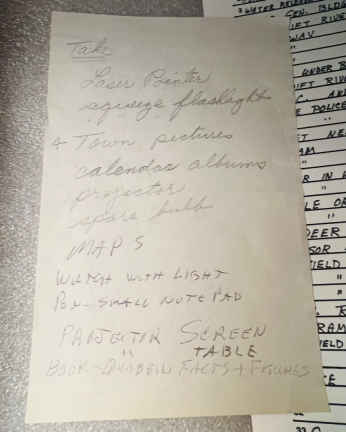 Take
Laser Pointer
squeeze flashlight
4 Town pictures
calendar albums
projector
spare bulb
MAPS
WATCH WITH LIGHT
PEN-SMALL NOTE PAD
PROJECTOR SCREEN
" TABLE
BOOK-QUABBIN FACTS + FIGURES
WATER
GEN. BLDG
IFT RIVE
WAY
"
UNDER B
IFT RIV
POLICE
NE
AM
R IN
"
LE OR
"
EER
SOR
IELD
"
"
RAM
IELD